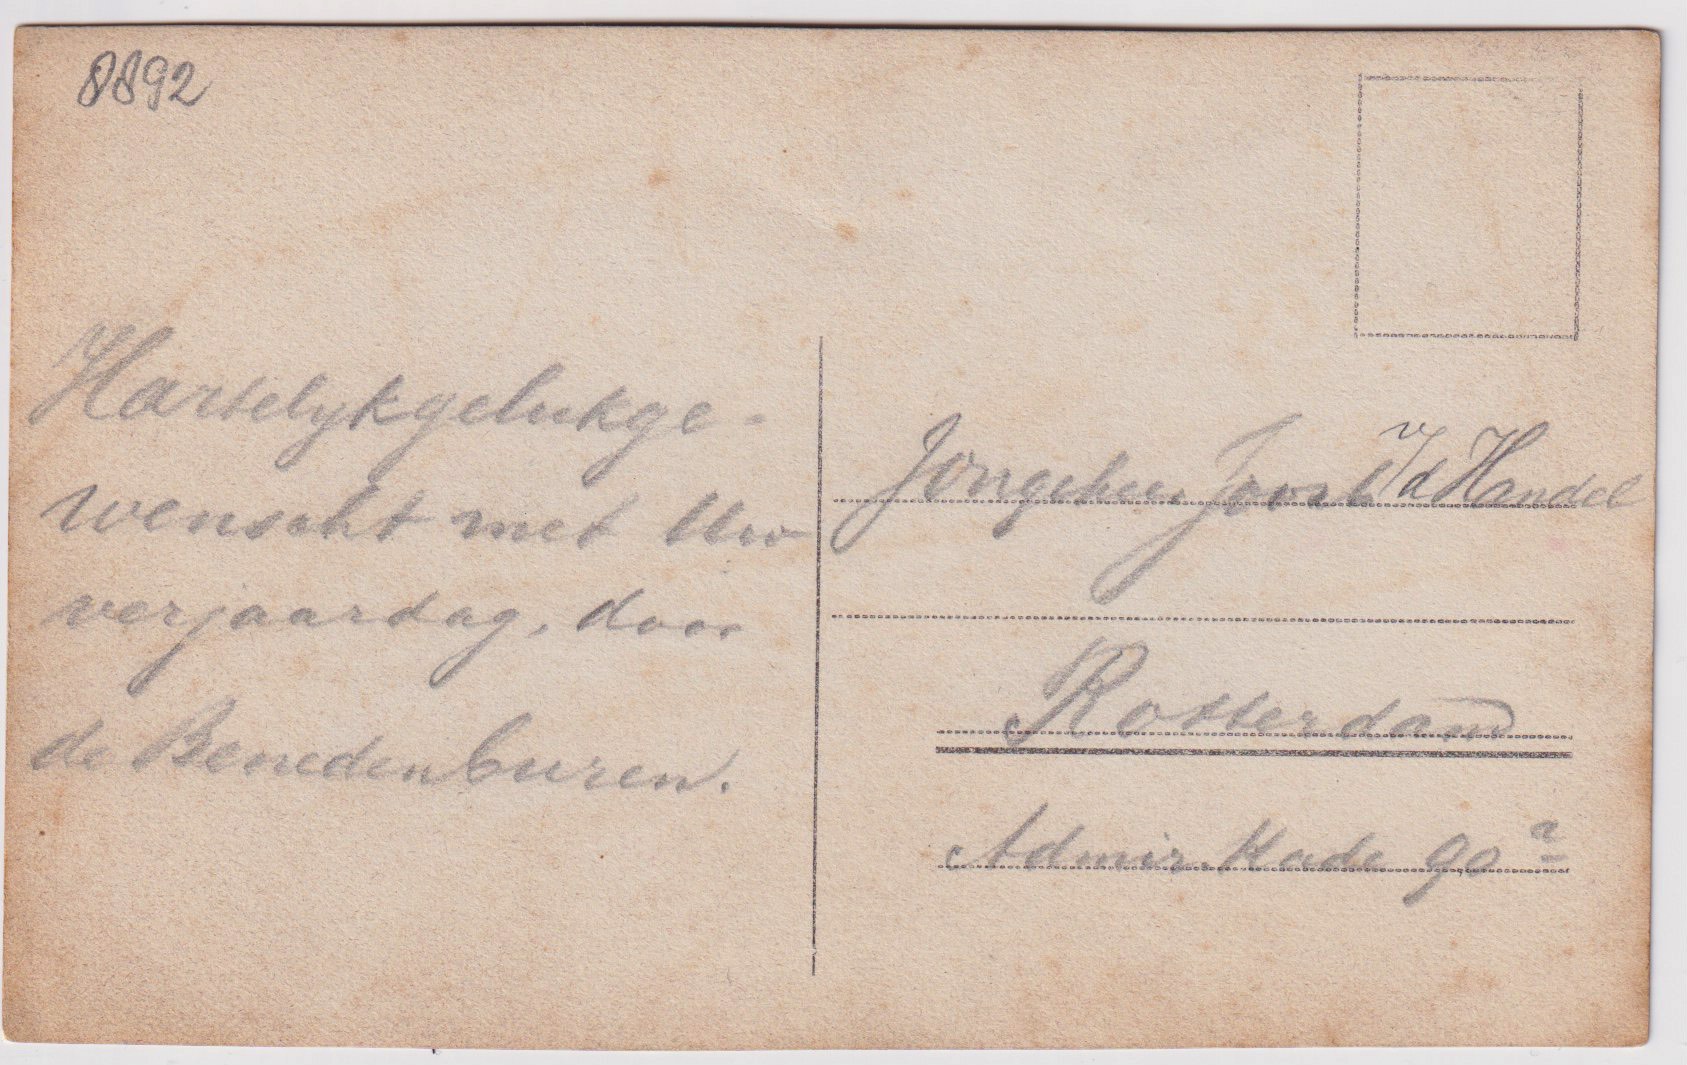 8892
Hartelykgelukge-
wenscht met Uw
verjaardag, door
de Benedenburen.
Jongeheer Joost v/d Handel
Rotterdam
Admir. Kade 90 a